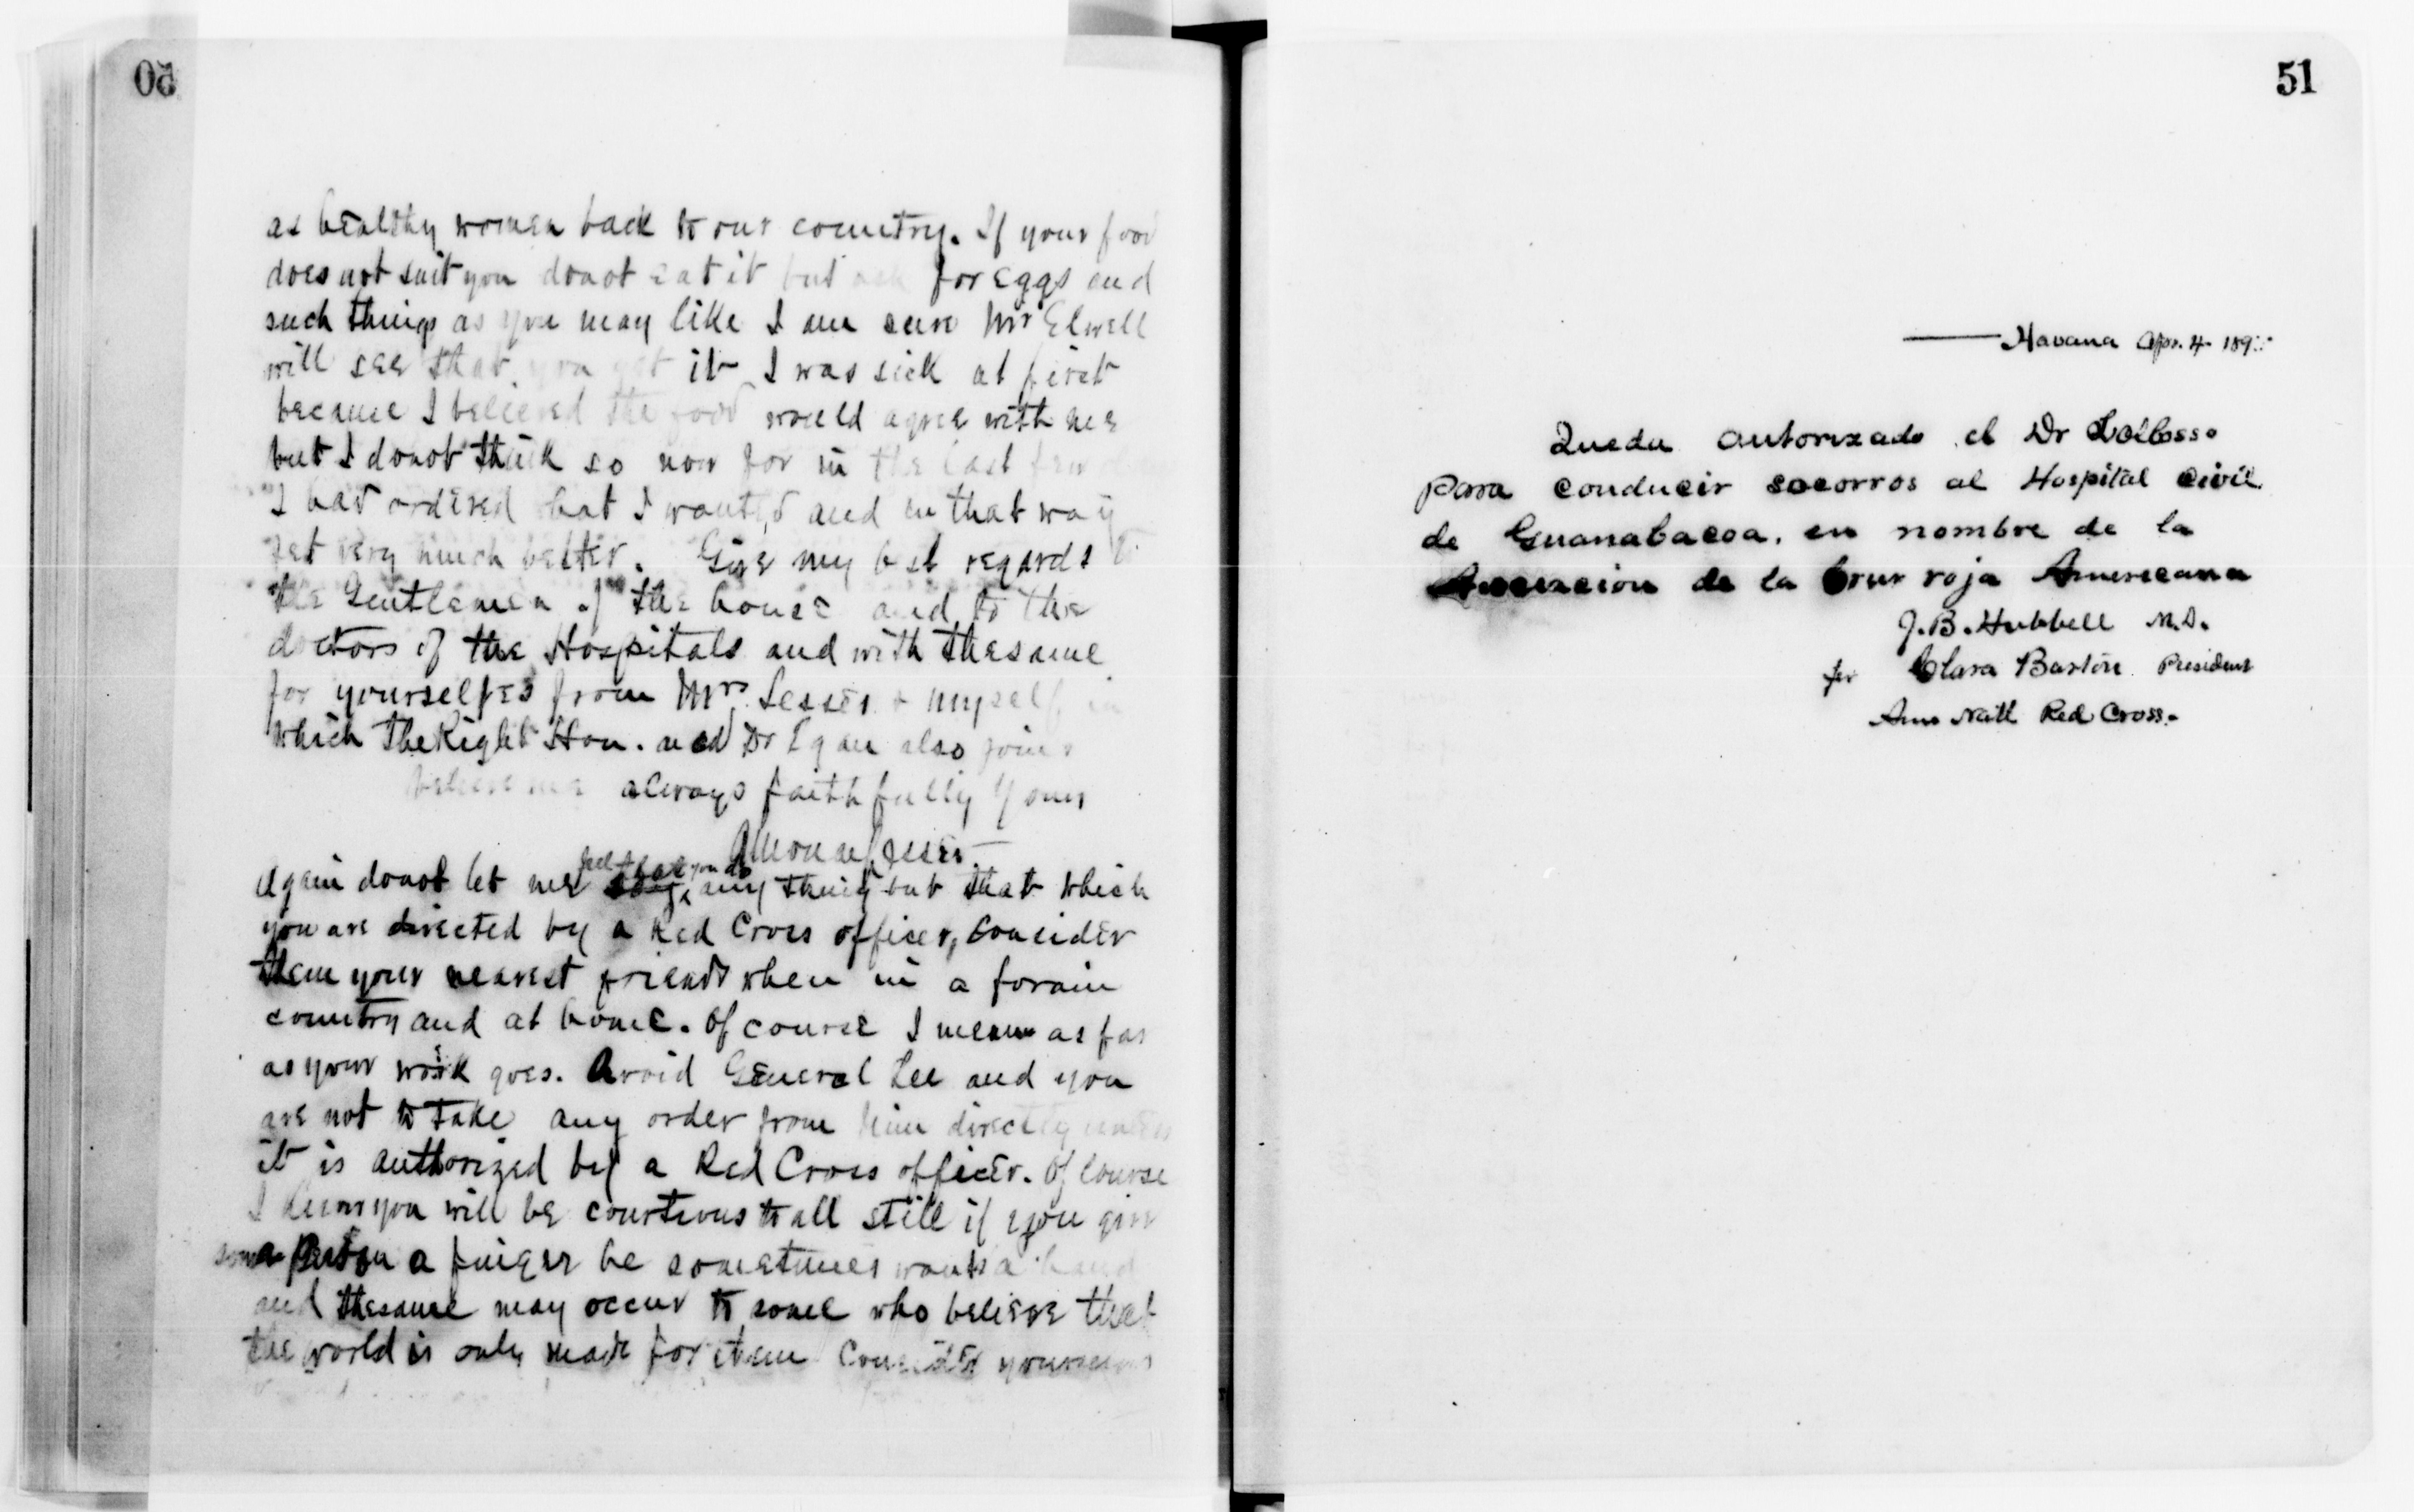 50
as healthy women back to our country. If your food
does not suit you donot eat it but ask for eggs and
such things as you may like I am sure Mr Elwell
will see that you get it I was sick at first
because I believed the food would agree with me
but I donot think so now for in the last few
I had ordered what I wanted and in that way
very much better. Give my best regards to
the Gentlemen of the house and to the
doctors of the Hospitals and with thesame
for yourselfes from Mrs. Lesser & myself in
which The Right Hon. and Dr Egan also joins
believe me always faithfully Yours
Again donot let me feel that you do any thing but that which
you are directed by a Red Cross officer, consider
them your nearest friends when in a forain
country and at home. Of course I mean as far
as your work goes. Avoid General Lee and you
are not to take any order from him directly unless
it is authorized by a Red Cross officer. Of course
I know you will be courtious to all still if you give
some person a finger he sometimes wants a hand
and thesame may occur to some who believe that
the world is only made for them Consider
51
Havana Apr. 4 189
Queda autorizado el Dr
para conducir socorros al Hospital Civil
de Guanabacoa, en nombre de la
de la Crur roja Americana
J. B. Hubbell M.D.
for Clara Barton President
Amn Natl Red Cross.